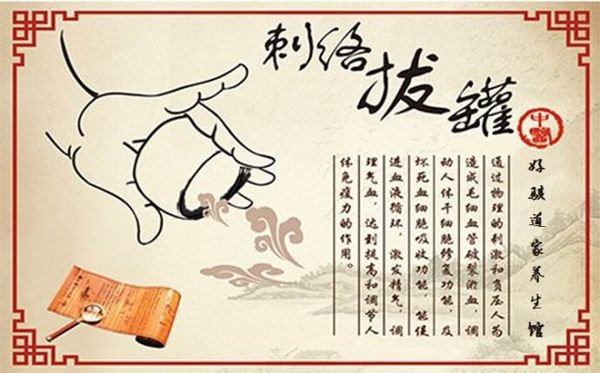 刺络拔罐
中醫
好骏道家养生馆
通过物理的刺激和负压人为
造成毛细血管破裂淤血，调
动人体干细胞修复功能，及
坏死血细胞吸收功能，能促
进血液循环，激发精气，调
理气血，达到提高和调节人
体免疫力的作用。